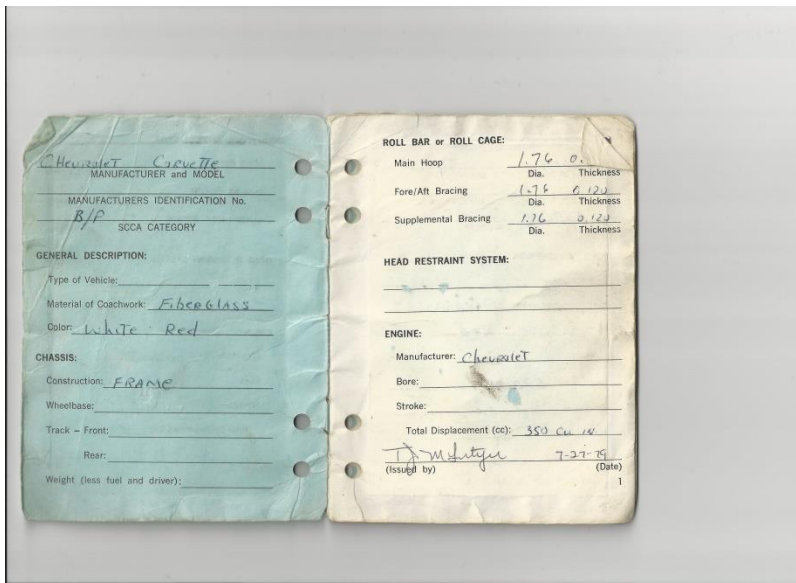 Chevrolet Corvette
MANUFACTURER and MODEL
MANUFACTURERS IDENTIFICATION No.
B/P
SCCA CATEGORY
GENERAL DESCRIPTION:
Type of Vehicle:
Material of Coachwork: FiberGlass
Color: White Red
CHASSIS:
Construction: FRAME
Wheelbase:
Track – Front:
Rear:
Weight (less fuel and driver):
ROLL BAR or ROLL CAGE:
Main Hoop 1.76 0.
Dia. Thickness
Fore/Aft Bracing 1.76 0.120
Dia. Thickness
Supplemental Bracing 1.76 0.120
Dia. Thickness
HEAD RESTRAINT SYSTEM:
ENGINE:
Manufacturer: Chevrolet
Bore:
Stroke:
Total Displacement (cc): 350 Cu in
7-27-79
(Issued by) (Date)
1